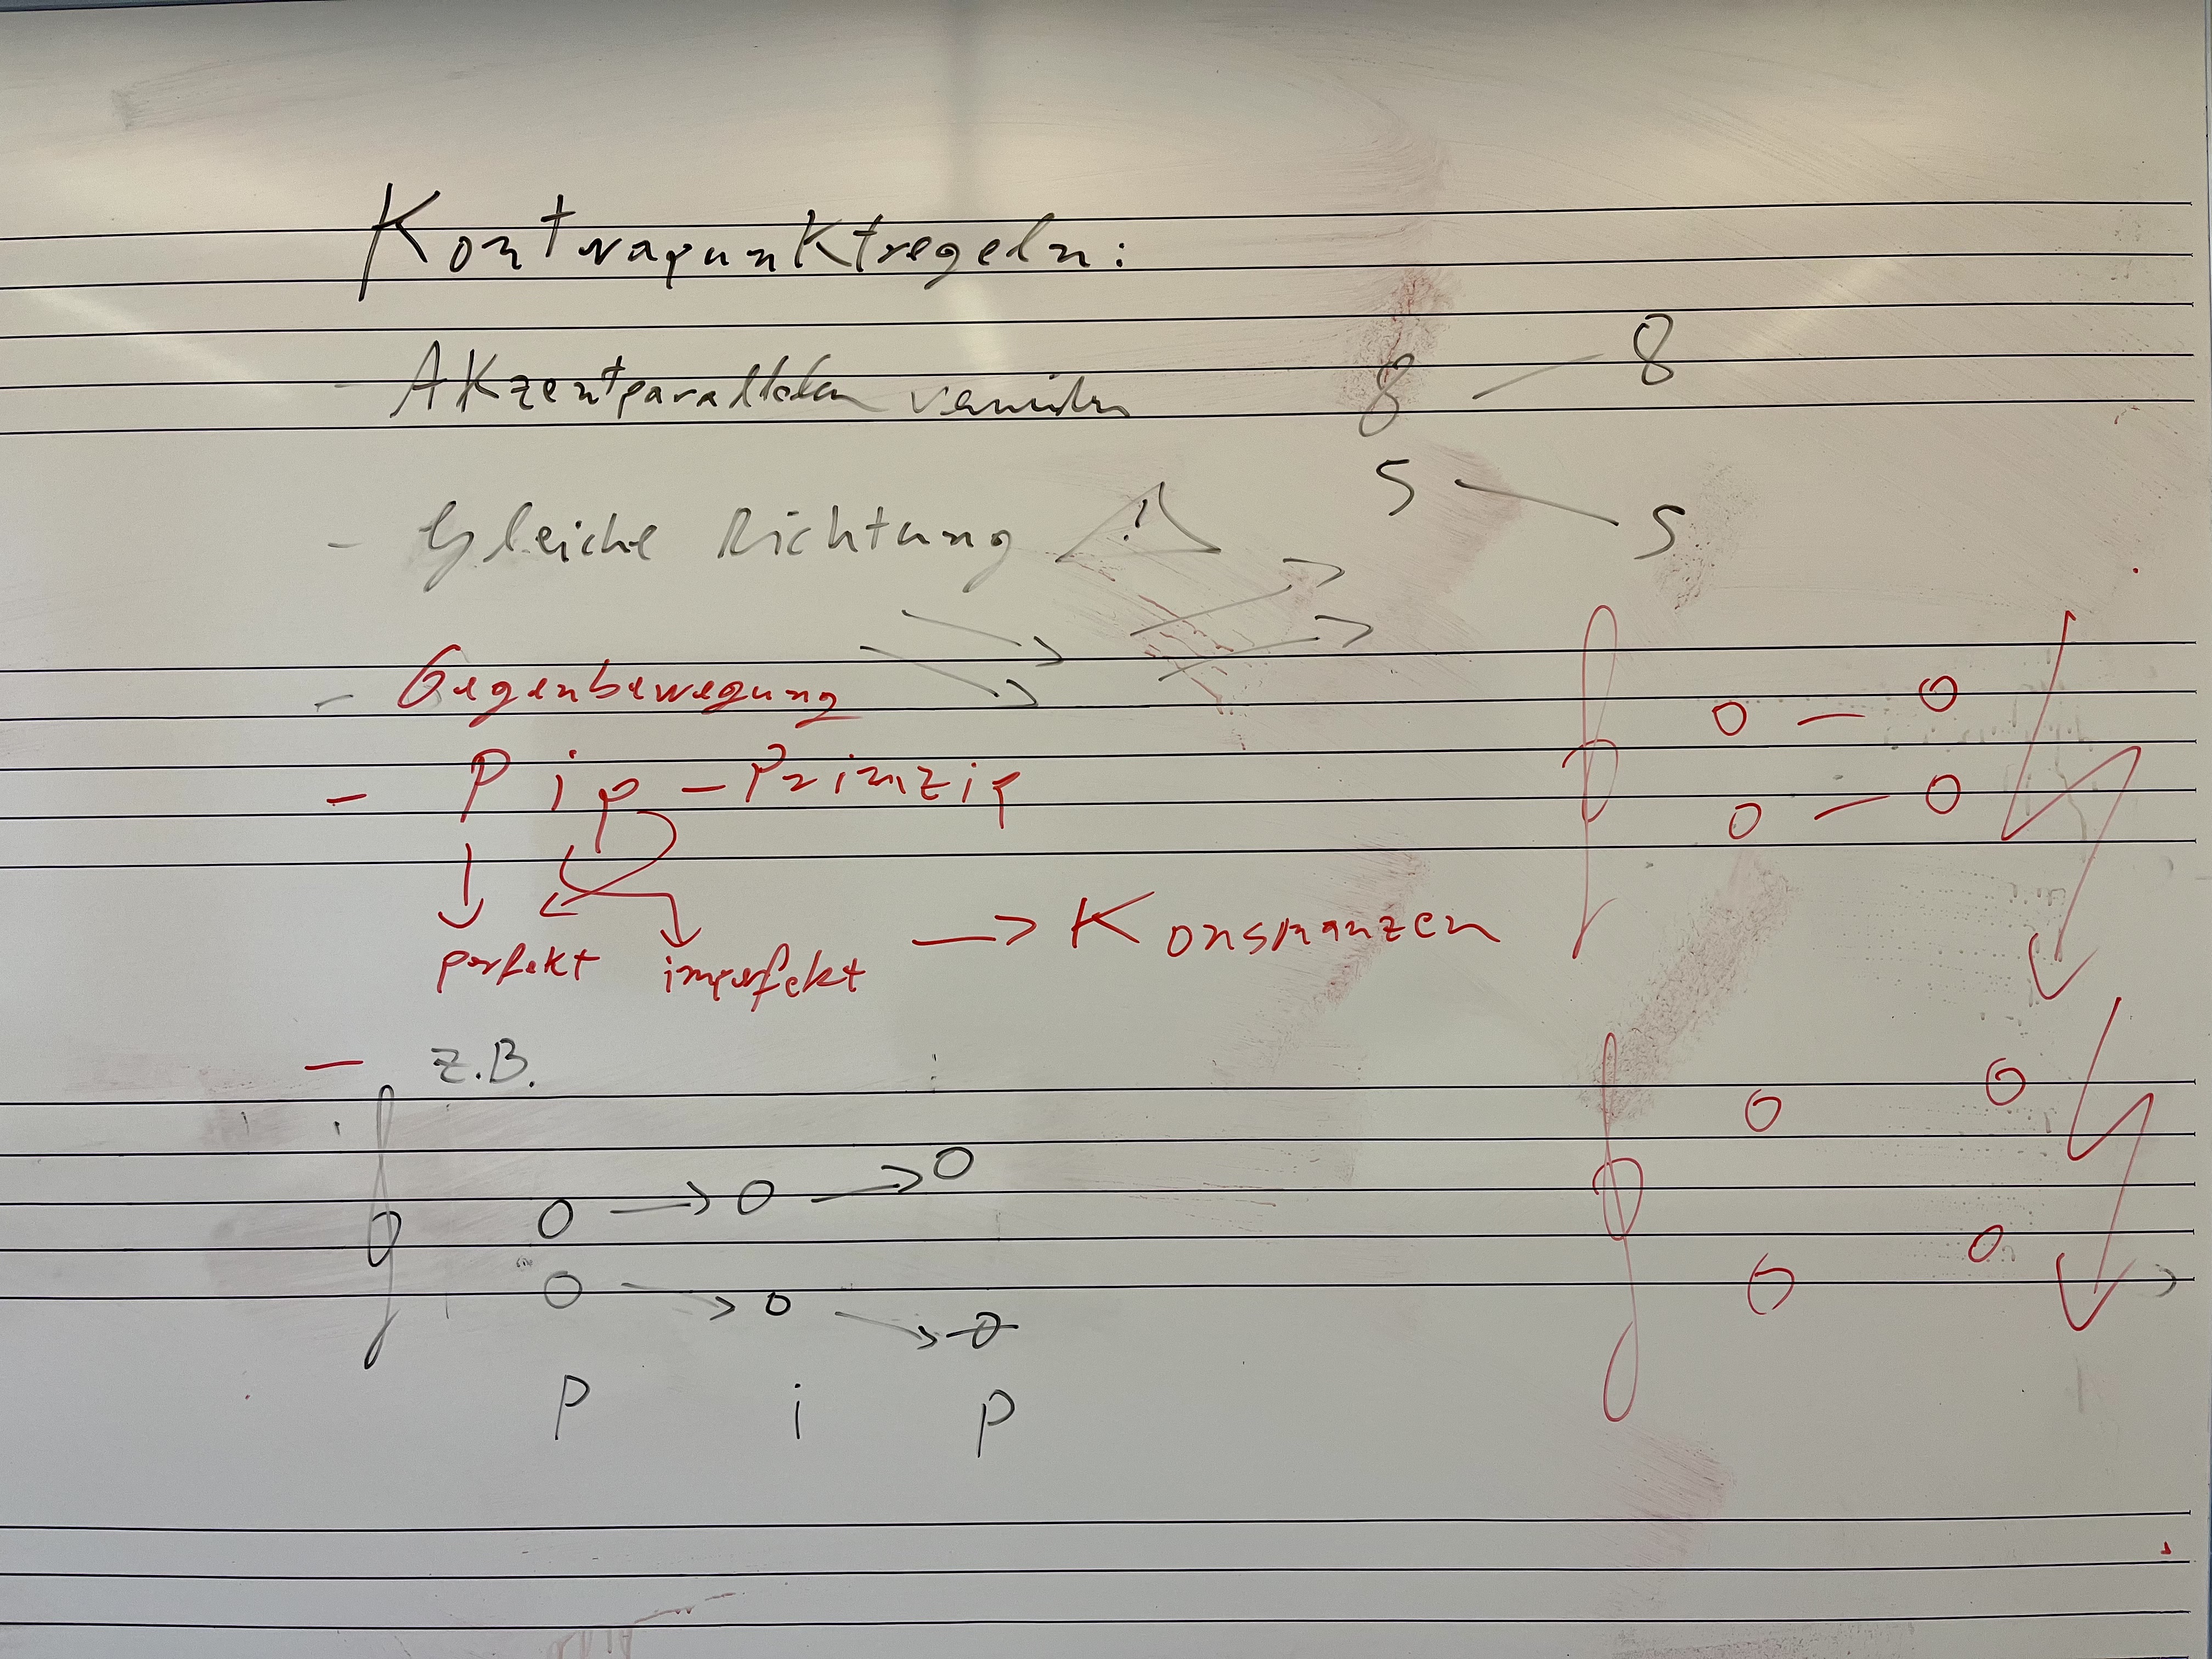 Kontrapunktregeln:
- Akzentparallelen vermeiden
8 — 8
5 — 5
- Gleiche Richtung !
- Gegenbewegung
- Pip - Prinzip
perfekt imperfekt → Konsonanzen
- z.B.
P i P